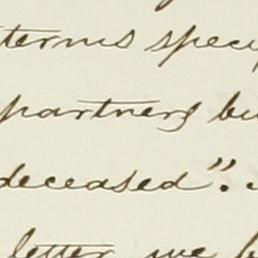 terms speci
partners bu
deceased".
letter we